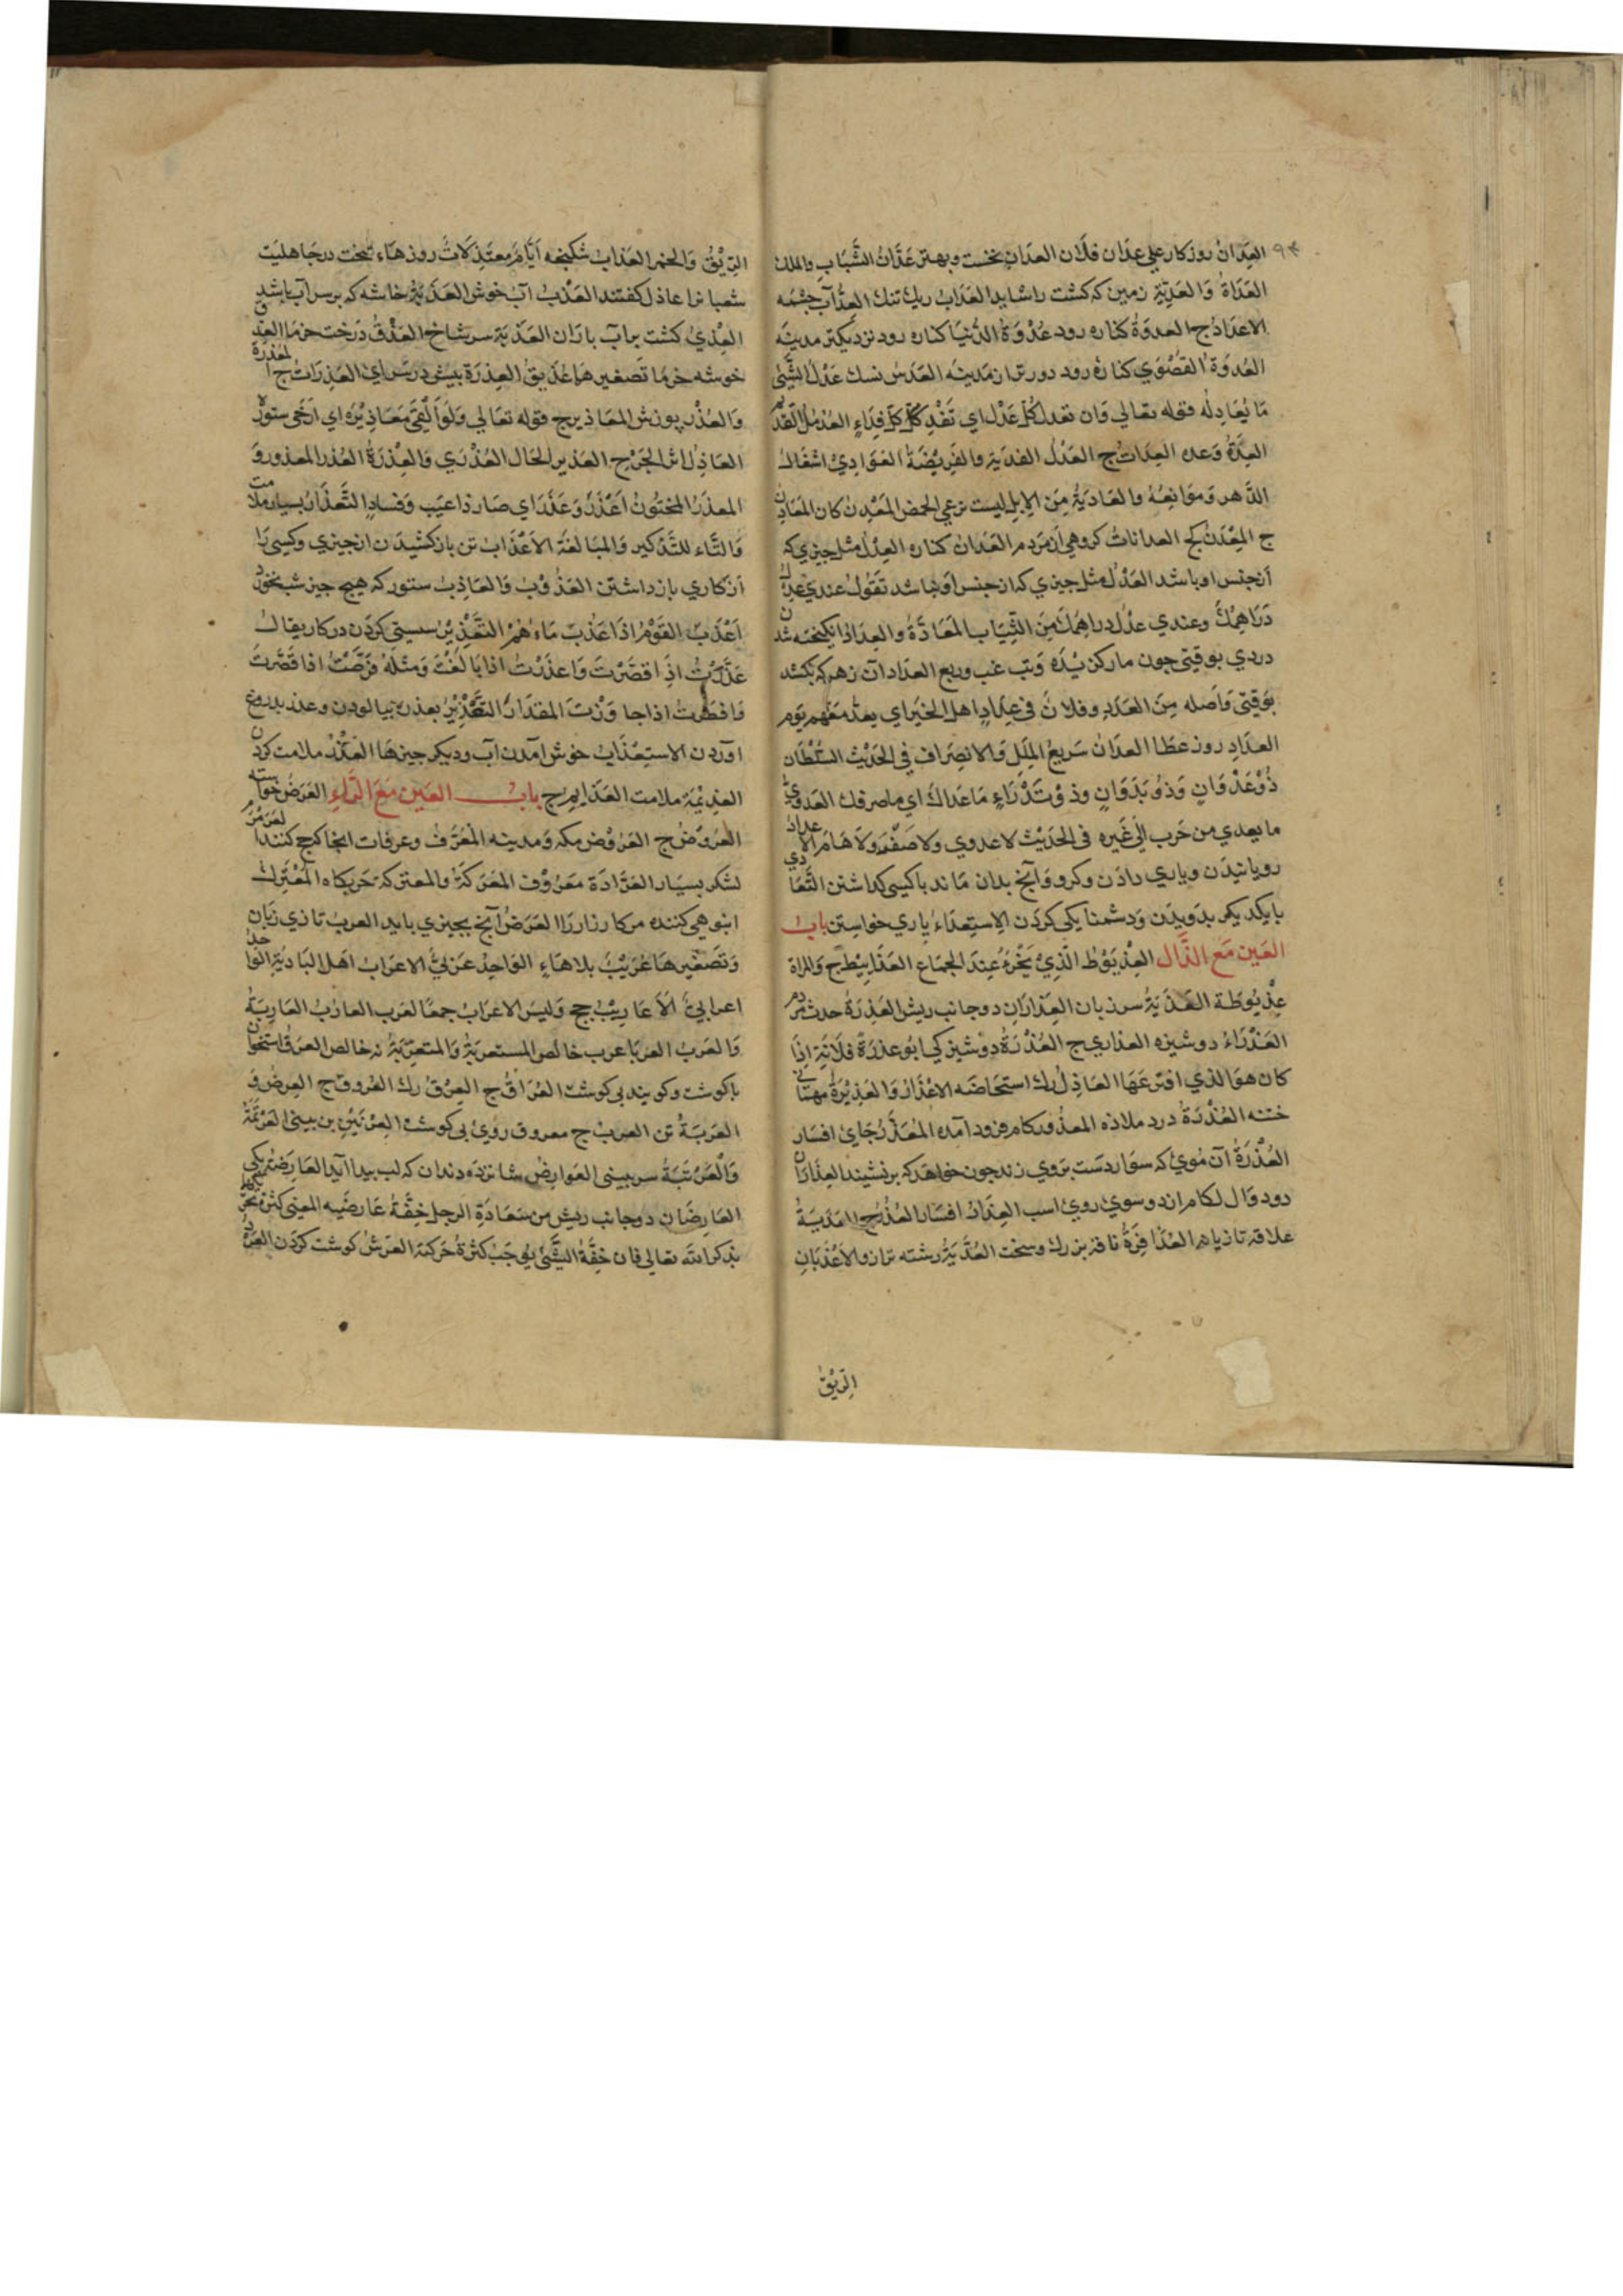 العِدَانُ روزكار علي عدان فلان العدان نخست وبهتر عَدَّانُ الشَّبَابِ والملك
العَدَاةُ وَالعَدِيَّة زمين كه كشت را شايد العَدَابُ ريك تنك العِدُّ آب جشمه
الاعدَادُ ج العدوَةُ كناره رود عُدْوَةُ الدُّنيَا كناره رود نزديكتر مدينَه
العُدوَةُ القُصْوَي كنارهٔ رود دورتر از مدينه العَدَسُ نسك عَدْلُ الشَّيْ
مَا يُعَادِلُه قوله تعالي وَان تعدل كُلَّ عَدْلٍ اي تَفْدِ كُلَّ فِدَاءٍ
العِدَةُ وَعده العِدَاتُ ج العَدْلُ الفديَة والفَرِيْضَةُ العَوَادِيْ اشغال
الدَّهر وَموَانِعُهُ والعَادِيَةُ مِنَ الاِبِلِ ليست ترعي الحمض المَعْدِن كان المَعَادِنُ
ج العدانات كروهي از مَردم العَدَان كناره العِدْل مثل جيزي كه
از جنس او باشد العَدْل مثل جيزي كه از جنس او نباشد تَقُولُ عندي عِدْلُ
دَرَاهِمِكَ وعندي عدْل دراهمك مِنَ الثِّيَابِ المَعَادَّةُ والعِدَادُ
دردي بوقتي جون ماركزيده وَتب غب وربع العداد آن زهر كه بكشد
بوَقتي وَاَصله مِنَ العَدَدِ وفلانٌ في عِدَادِ اهل الخَيْر اي يعدُّ مَعَهم يَوم
العِدَادِ روز عطا العدَان سَريعُ المَلَلِ وَالانصِرَاف في الحَدِيْث السُّلْطَان
ذُوْعَدَوَانٍ وَذُوْبَدَوَانٍ وذوتُدْرَاءٍ مَاعَدَاكَ اي ماصرفك العَدوي
ما يعدي من جَرب اِلٰي غَيره في الحَدِيْث لاعدوي ولاصَفَرَ وَلاهَامَ الاعداد
رويانيدَن وياري دادَن وكرو وَآنج بدان مَاند باكسي كذاشتن التَّعَادِي
بايكديكر بدَويدَن وَدشمنايكي كردَن الاِستِعدَاءُ ياري خواستن باب
العَين مَع الذَّال العِذْيَوْطُ الَّذِيْ يَخْرَءُ عِندَ الجِمَاع العَذَايِيْط ج وَالمراة
عِذْيُوطَة العَذَبَةُ سر زبان العِذَارَانِ دوجانب ريش العَذِرَةُ حدث مردم
العَذْرَاءُ دوشيزه العذاري ج العُذْرَةُ دوشيزكي ابُوعذرَة فلانَة اِذَا
كان هوَ الذي افترعَهَا العَاذِلُ رك استحاضَه الاعْذَارُ وَالعَذِيْرَةُ مهماني
ختنه العُذْرَةُ درد ملاذه المعذُور كام فرود آمده المُعَذَّرُ جَايِ افسار
العُذْرَةُ آن مُويْ كه سوَار دست بَروي زند جون خواهد كه برنشيند العِذَارَانِ
دو دوَال لكام از دو سوي رويْ اسب العِذَارُ افسَار العُذْرُ ج العَذَبَةُ
علاقه تازيانه العُذَافِرَةُ ناقه بزرك وسخت العَذَبَةُ رشته ترازو الاَعْذَبَانِ
الرِّيْقُ
الرِّيْقُ وَالخمر العَذابُ شكنجه اَيَّامٌ مُعتَذِلَاتٌ روزهَاءِ سخت در جَاهليت
شعبان را عاذل كفتند العَذْبُ آبْ خوش العَذَبَةُ خاشه كه بر سر آب باشد
العِذْيُ كشت بر آب بارَان العَذَبَة سر شاخ العَذْقُ دَرخت خرمَا العِذق
خوشه خرمَا تصغيرهَا عُذَيقٌ العِذرَة بيش در سَراي العَذِرَات ج المعذرَة
وَالعُذْر پوزش المعَاذير ج قوله تعَالي وَلَوْاَلْقَيٰ مَعَاذِيْرَهُ اي اَرْخَي ستورَهُ
العَاذِرُ اثر الجَرح العَذير الحَال العُذْرَي وَالعِذْرَةُ العُذر المعذورو
المعذَرُ المختُون اَعْذَرَ وَعَذَّرَ اي صَار ذاعَيب وَفسَادٍ التَّعذَالُ بسيار ملامت
وَالتَّاء للتَّذكير وَالمبَالغَة الاَعْذَابُ تن بازكشيدَن ازجيزي وكسي رَا
اَزكاري بازداشتن العَذُوْبُ وَالعَاذِبُ ستور كه هيج جيز نخورد
اَعْذَبَ القَوْمُ اذا عَذَبَ مَاءُهُمْ التَّعْذِيْرُ سستي كردَن دركار يقال
عَذَّرْتُ اِذَا قصَّرْتَ وَاعذَرْتُ اذا بَالَغْتَ وَمثله فرّطْتُ اذا قَصَّرتَ
وَافرَطتُ اذا جاوَزْتَ المقدَارَ التَّعْذِيْرُ بعذره بيالودن وعذر بدروغ
آوردن الاستِعْذَابُ خوش آمدن آب وديكر جيزهَا العَذْلُ ملامت كردن
العذِيْمَة ملامت العَذَايِم ج بابُ العَين مَعَ الرَّاءِ العَرَضُ خواسته
العُرُوضُ ج العَرُوْض مكه وَمدينه المعَرَّفُ وعرفات انجا كج كنند العَرَمْرَمُ
لشكر بسيَار العَرَّادَة مَعْرُوْف المَعْرَكَةُ والمعتركة حَربكاه المُعْتَرِكُ
انبوهي كننده مر كارزار رَا العَرَضُ آنج بجيزي بايد العرب تازي زبَان
وَتصَغيرهَا عُرَيْبٌ بلا هَاءِ الوَاحِدُ عَرَبيٌّ الاعرَاب اَهْل البَادِيَةِ الوَاحدُ
اعرَابِيٌّ الاَعَارِيْبُ جج وَليْسَ الاعرَابُ جمعًا لعَرَب العَارِبُ العَارِبَةُ
وَالعَرَبُ العَربَا عرب خالص المستعربَةُ وَالمتعرّبَةُ نه خالص العَرقُ استخوان
باكوشت وكويند بي كوشت العُرَاقُ ج العِرْقُ رك العُرُوق ج العِرض وَ
العَرَبَةُ تن العرب ج معروق رويْ بي كوشت العِرْنَيْنُ بن بيني العَرْتَمَةُ
وَالعَرْتَبَةُ سر بيني العَوَارِضُ شانزده دندان كه لب بيدا آيد العَارِضَة يكي
العَارِضَان دوجانب ريش من سَعَادَةِ الرجل خِفَّةُ عَارضَيه المعنِي كثرة تحرّكها
بذكر الله تعالي فان خِفَّةَ الشَّيْءِ يُوجَبُ كثرةُ حَركته العَرشُ كوشت كردَن